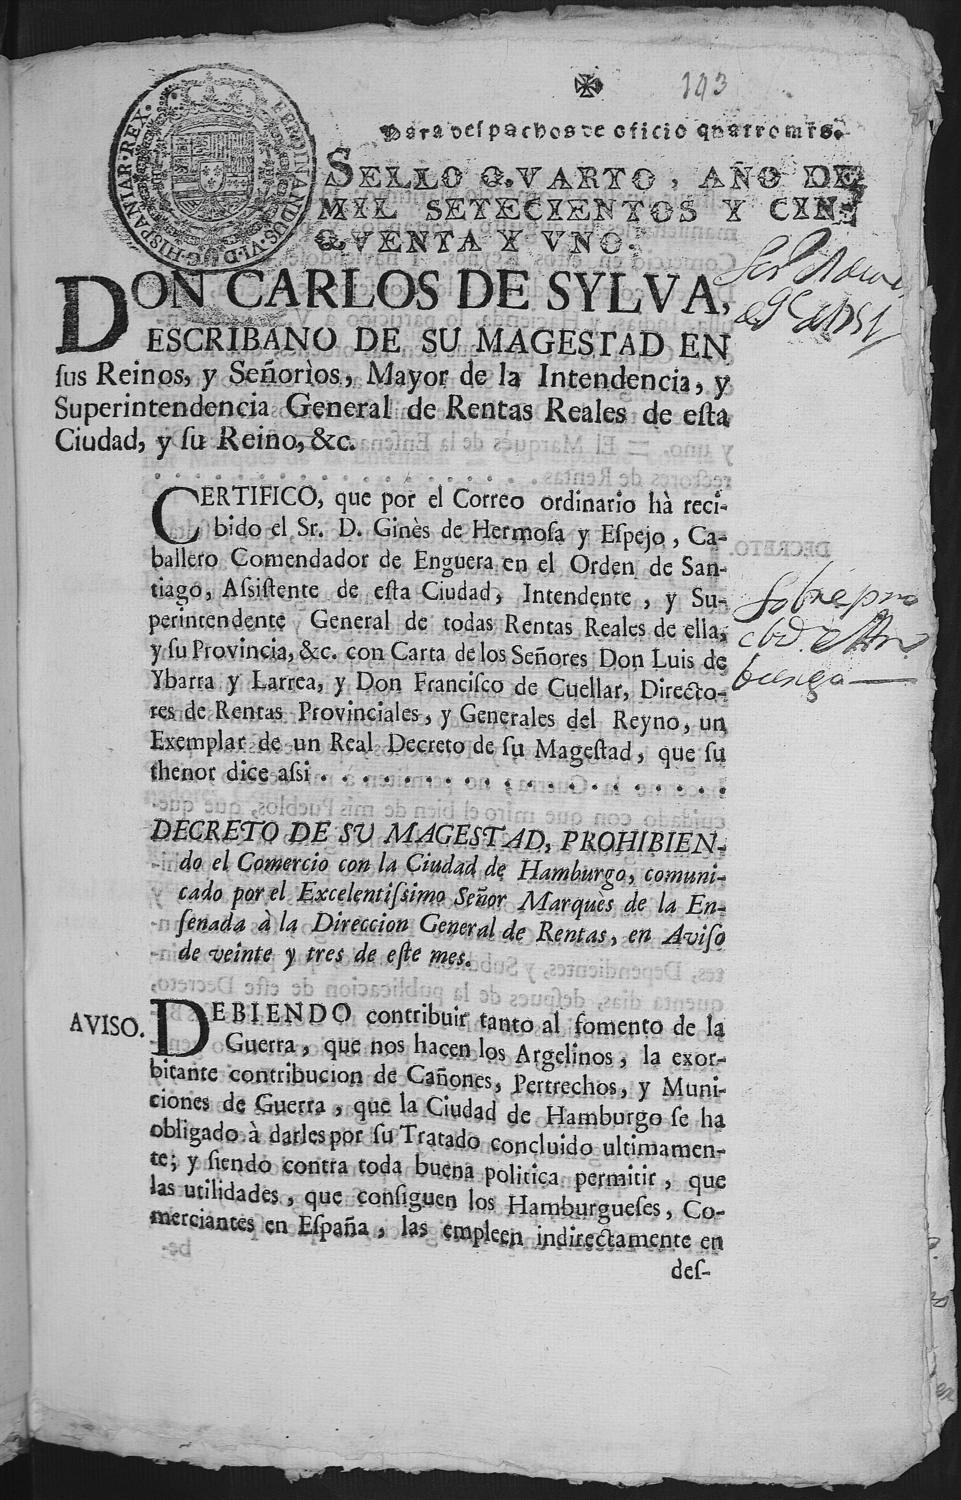 143
Para despachos de oficio quatro mrs.
SELLO QVARTO, AÑO DE
MIL SETECIENTOS Y CIN-
QVENTA Y VNO.
FERDINANDUS·VI·D·G·HISPANIAR·REX·
DON CARLOS DE SYLVA,
ESCRIBANO DE SU MAGESTAD EN
ſus Reinos, y Señorìos, Mayor de la Intendencia, y
Superintendencia General de Rentas Reales de eſta
Ciudad, y ſu Reino, &c.
CERTIFICO, que por el Correo ordinario hà reci-
bido el Sr. D. Ginès de Hermoſa y Eſpejo, Ca-
ballero Comendador de Enguera en el Orden de San-
tiago, Aſsiſtente de eſta Ciudad, Intendente, y Su-
perintendente General de todas Rentas Reales de ella,
y ſu Provincia, &c. con Carta de los Señores Don Luis de
Ybarra y Larrea, y Don Franciſco de Cuellar, Directo-
res de Rentas Provinciales, y Generales del Reyno, un
Exemplar de un Real Decreto de ſu Mageſtad, que ſu
thenor dice aſsi . . . . . . . . . . . . . . . .
DECRETO DE SU MAGESTAD, PROHIBIEN-
do el Comercio con la Ciudad de Hamburgo, comuni-
cado por el Excelentiſsimo Señor Marquès de la En-
ſenada à la Direccion General de Rentas, en Aviſo
de veinte y tres de eſte mes.
AVISO.
DEBIENDO contribuir tanto al fomento de la
Guerra, que nos hacen los Argelinos, la exor-
bitante contribucion de Cañones, Pertrechos, y Muni-
ciones de Guerra, que la Ciudad de Hamburgo ſe ha
obligado à darles por ſu Tratado concluido ultimamen-
te; y ſiendo contra toda buena politica permitir, que
las utilidades, que conſiguen los Hamburgueſes, Co-
merciantes en Eſpaña, las empleen indirectamente en
deſ-